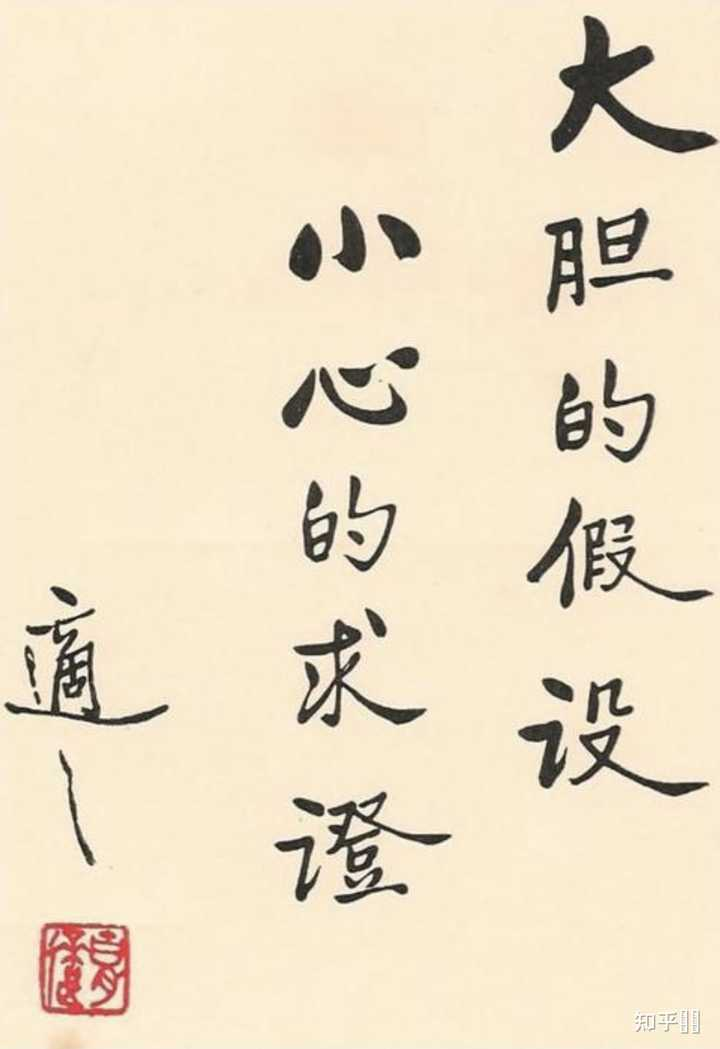 大胆的假设
小心的求證
適之
知乎